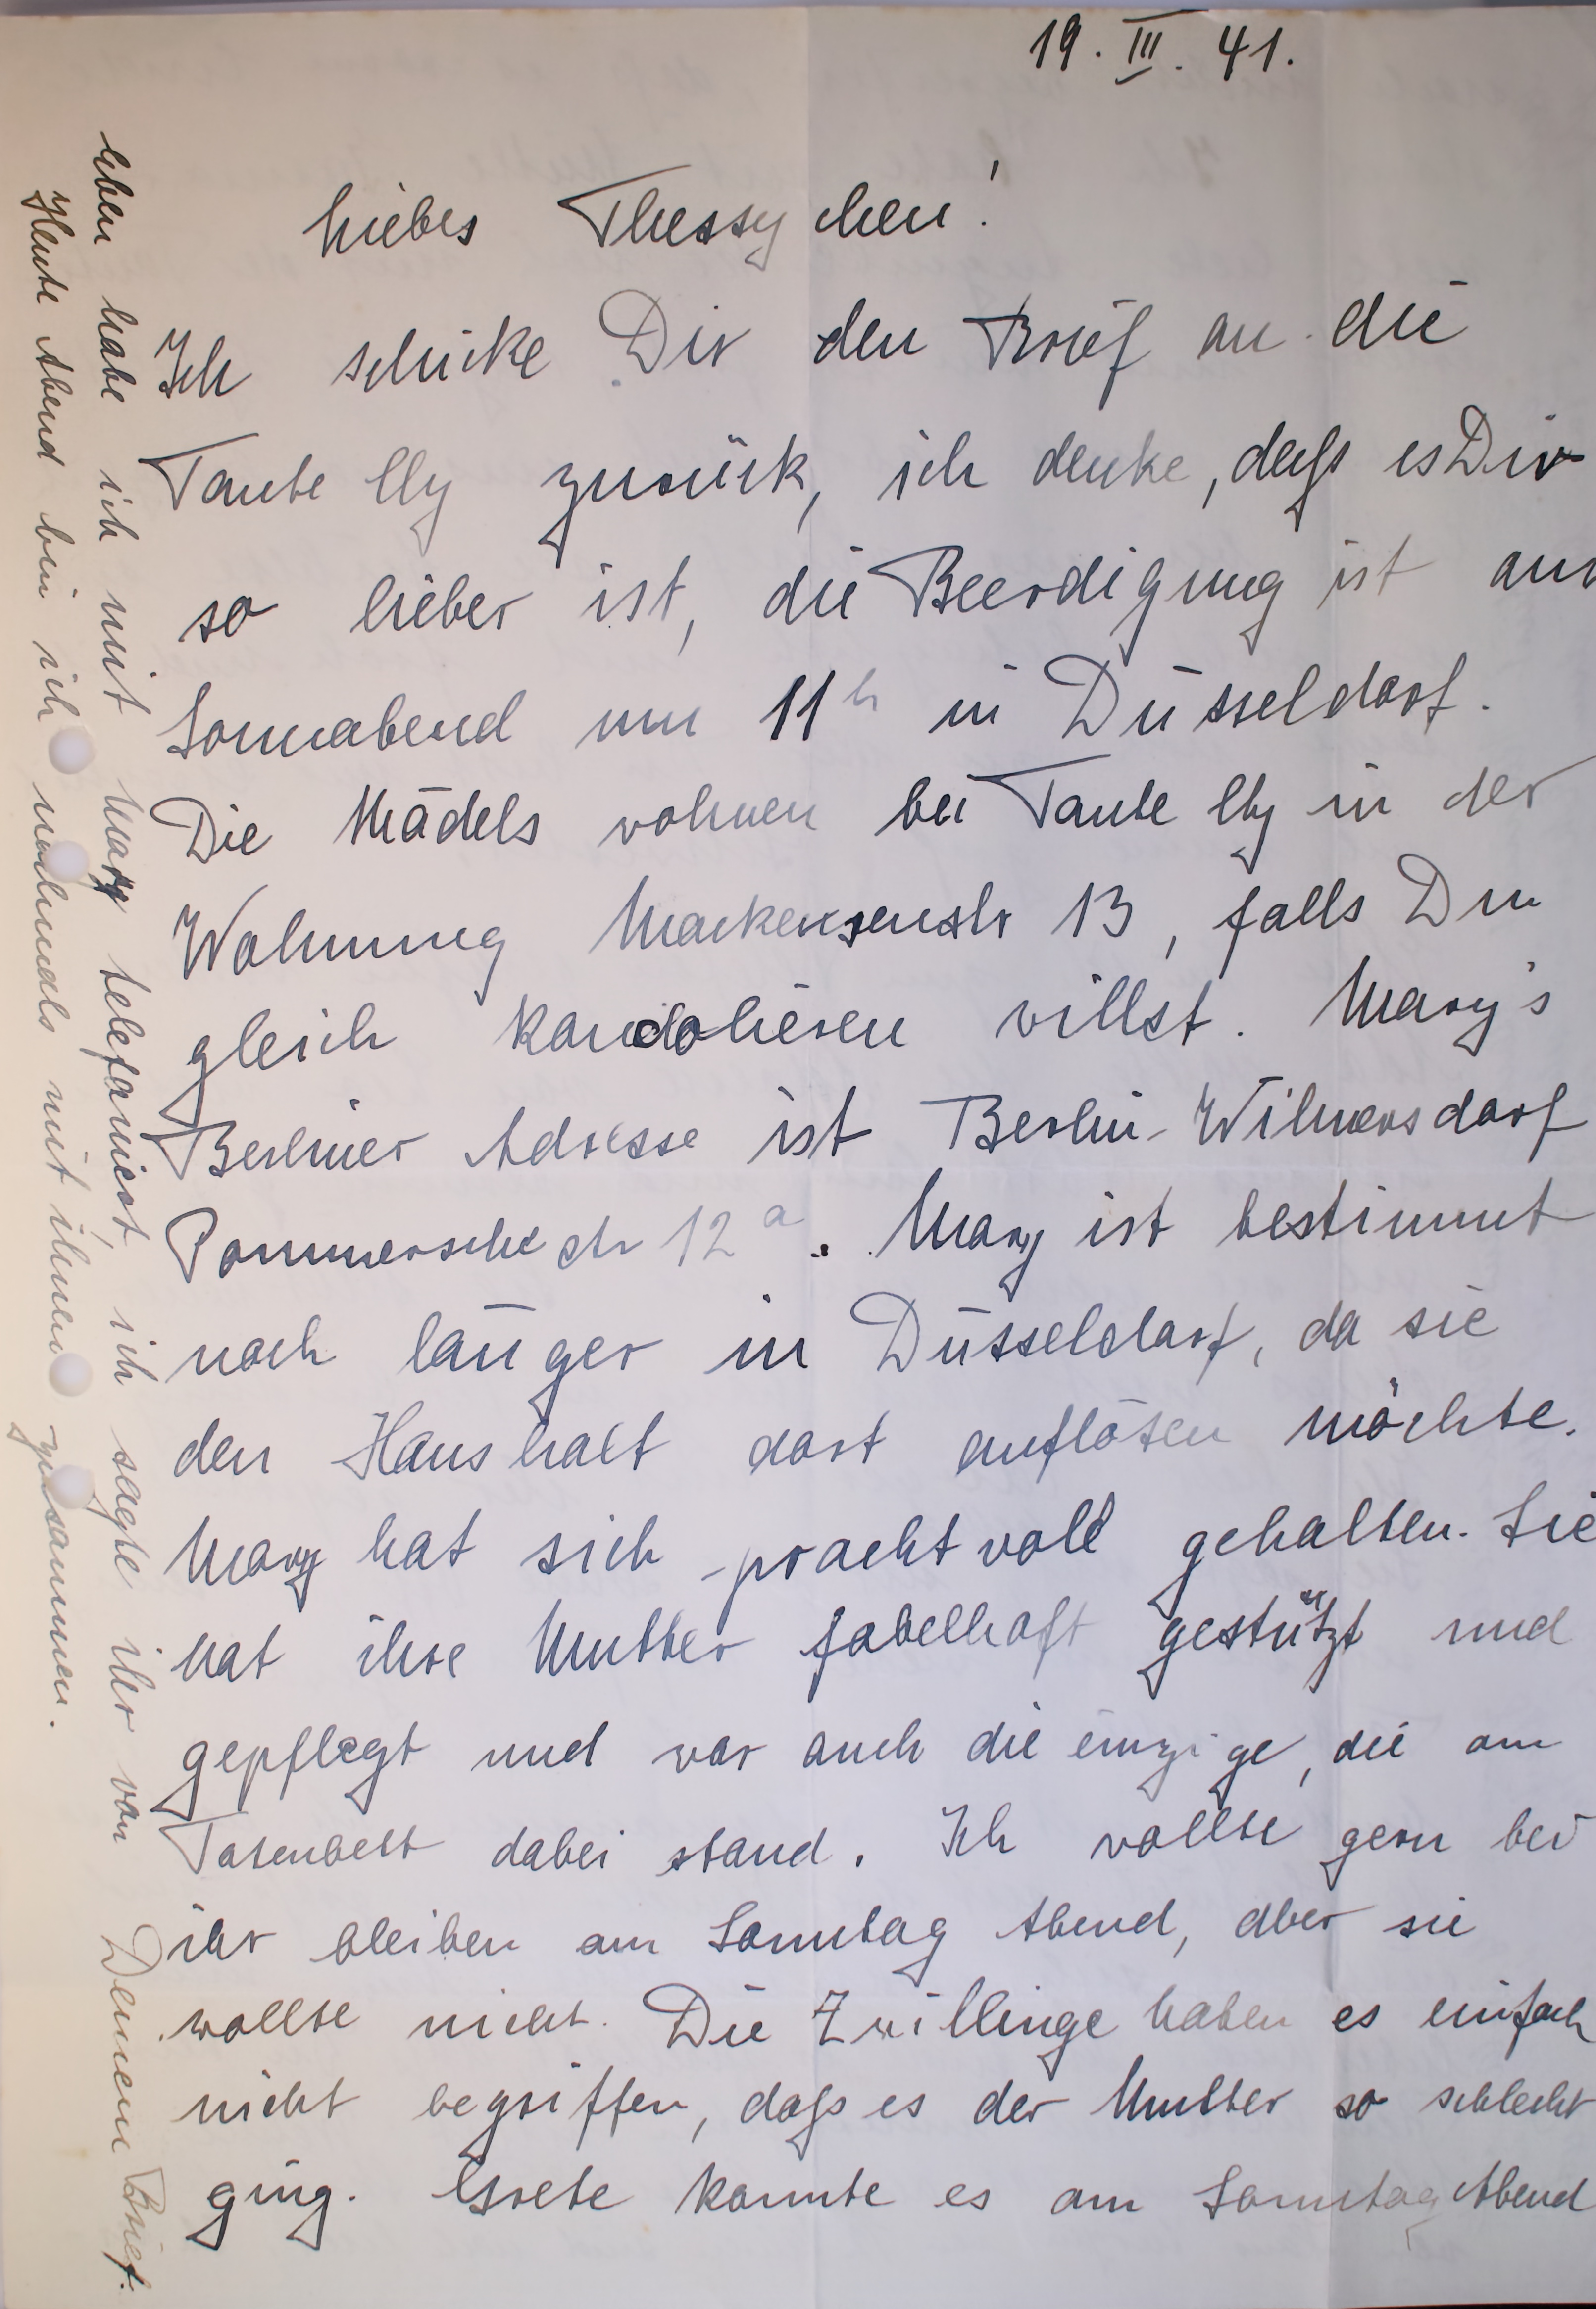 19. III. 41.
Liebes Thessychen!
Ich schicke Dir den Brief an die
Tante Elly zurück, ich denke, daß es Dir
so lieber ist, die Beerdigung ist am
Sonnabend um 11h in Düsseldorf.
Die Mädels wohnen bei Tante Elly in der
Wohnung Mackensenstr 13, falls Du
gleich kondolieren willst. Mary's
Berliner Adresse ist Berlin-Wilmersdorf
Pommersche str 12a. Mary ist bestimmt
noch länger in Düsseldorf, da sie
den Haushalt dort auflösen möchte.
Mary hat sich prachtvoll gehalten. Sie
hat ihre Mutter fabelhaft gestützt und
gepflegt und war auch die einzige, die am
Totenbett dabei stand. Ich wollte gern bei
ihr bleiben am Sonntag Abend, aber sie
wollte nicht. Die Zwillinge haben es einfach
nicht begriffen, daß es der Mutter so schlecht
ging. Grete konnte es am Sonntag Abend
eben habe ich mit Mary telefoniert, ich sagte ihr von Deinem Brief.
Heute Abend bin ich nochmals mit ihnen zusammen.